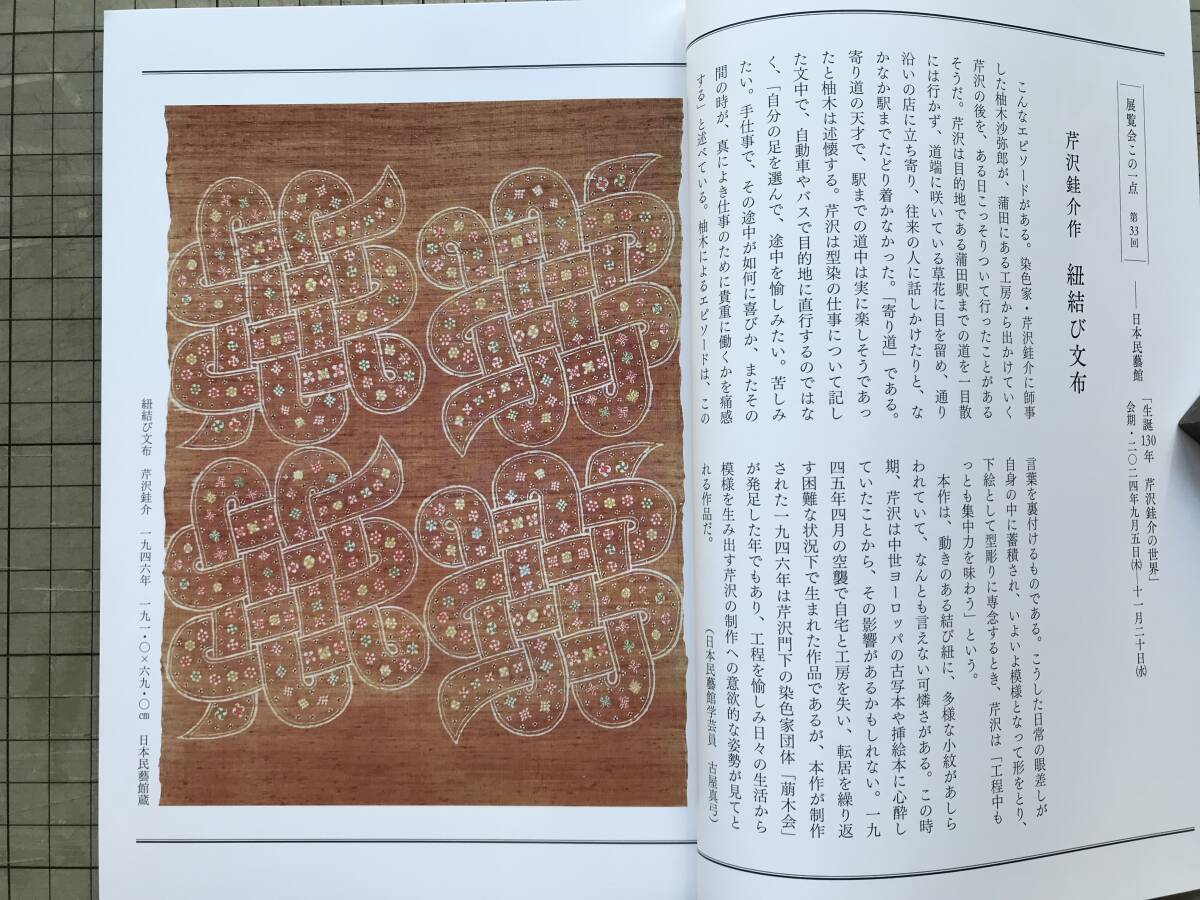 展覧会この一点 第33回 ── 日本民藝館 「生誕130年 芹沢銈介の世界」
会期・二〇二四年九月五日㈭─十一月二十日㈬
芹沢銈介作 紐結び文布
こんなエピソードがある。染色家・芹沢銈介に師事
した柚木沙弥郎が、蒲田にある工房から出かけていく
芹沢の後を、ある日こっそりついて行ったことがある
そうだ。芹沢は目的地である蒲田駅までの道を一目散
には行かず、道端に咲いている草花に目を留め、通り
沿いの店に立ち寄り、往来の人に話しかけたりと、な
かなか駅までたどり着かなかった。「寄り道」である。
寄り道の天才で、駅までの道中は実に楽しそうであっ
たと柚木は述懐する。芹沢は型染の仕事について記し
た文中で、自動車やバスで目的地に直行するのではな
く、「自分の足を選んで、途中を愉しみたい。苦しみ
たい。手仕事で、その途中が如何に喜びか、またその
間の時が、真によき仕事のために貴重に働くかを痛感
する」と述べている。柚木によるエピソードは、この
言葉を裏付けるものである。こうした日常の眼差しが
自身の中に蓄積され、いよいよ模様となって形をとり、
下絵として型彫りに専念するとき、芹沢は「工程中も
っとも集中力を味わう」という。
本作は、動きのある結び紐に、多様な小紋があしら
われていて、なんとも言えない可憐さがある。この時
期、芹沢は中世ヨーロッパの古写本や挿絵本に心酔し
ていたことから、その影響があるかもしれない。一九
四五年四月の空襲で自宅と工房を失い、転居を繰り返
す困難な状況下で生まれた作品であるが、本作が制作
された一九四六年は芹沢門下の染色家団体「萠木会」
が発足した年でもあり、工程を愉しみ日々の生活から
模様を生み出す芹沢の制作への意欲的な姿勢が見てと
れる作品だ。
（日本民藝館学芸員 古屋真弓）
紐結び文布 芹沢銈介 一九四六年 一九一・〇×六九・〇㎝ 日本民藝館蔵